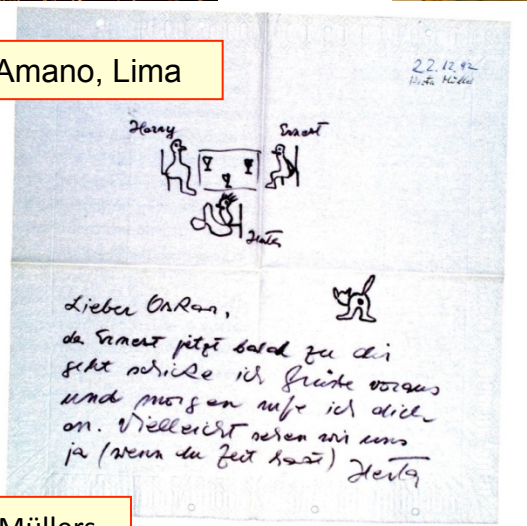 Amano, Lima
22.12.92
Herta Müller
Harry
Ernest
Herta
Lieber OsKar,
da Ernest jetzt bald zu dir
geht schicke ich Grüße voraus
und morgen rufe ich dich
an. Vielleicht sehen wir uns
ja (wenn du Zeit hast) Herta
Müllers